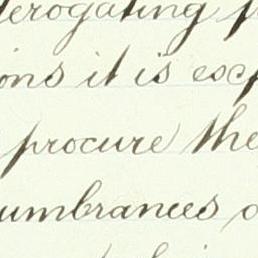 erogating
ons it is
procure the
umbrances